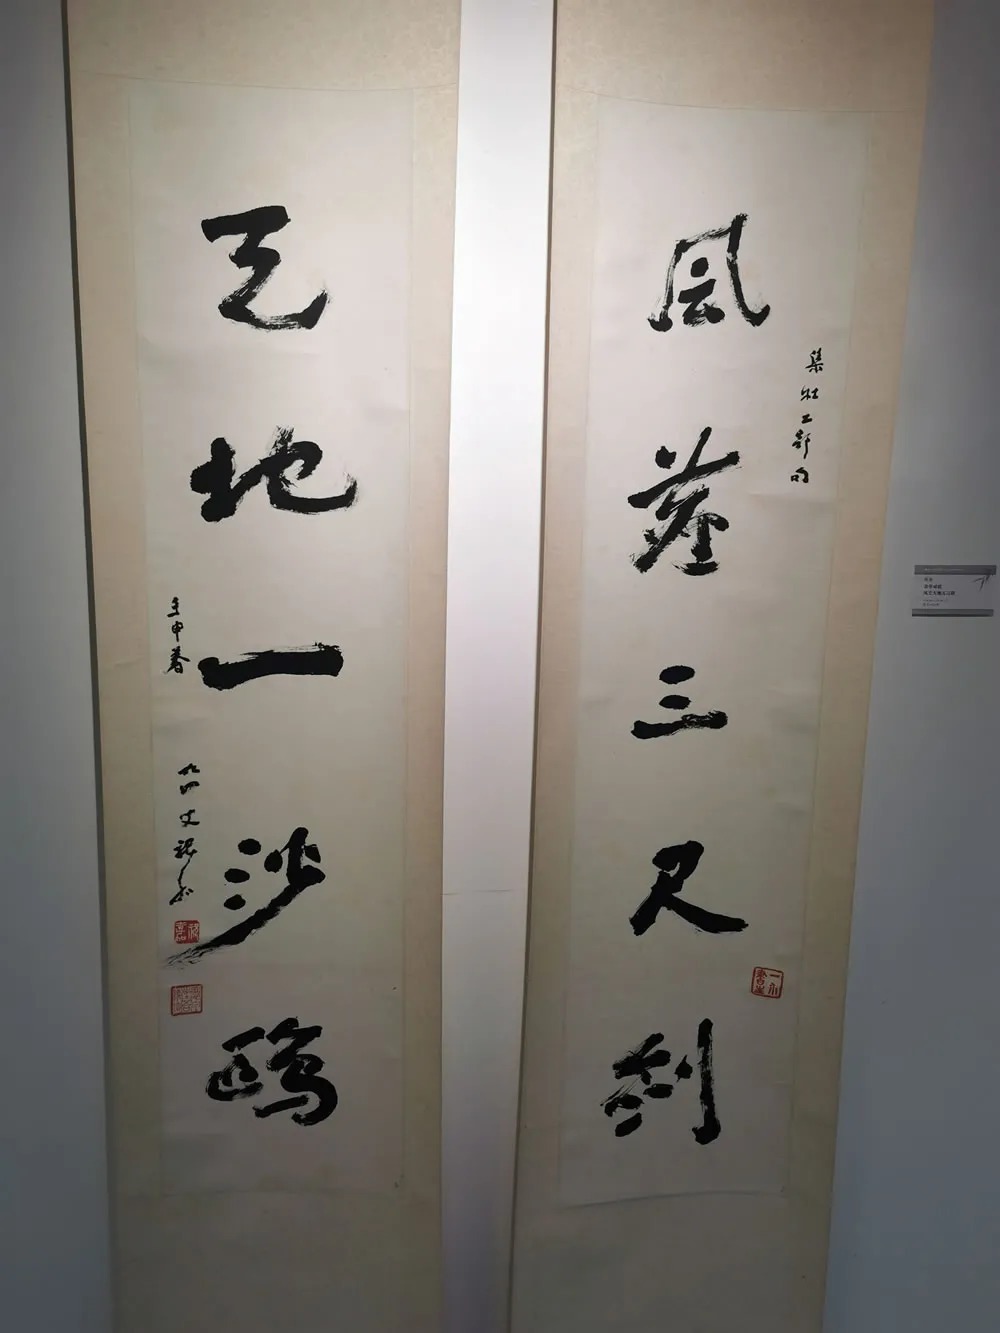 風塵三尺劍
集杜工部句
天地一沙鷗
壬申春
九四叟祝嘉